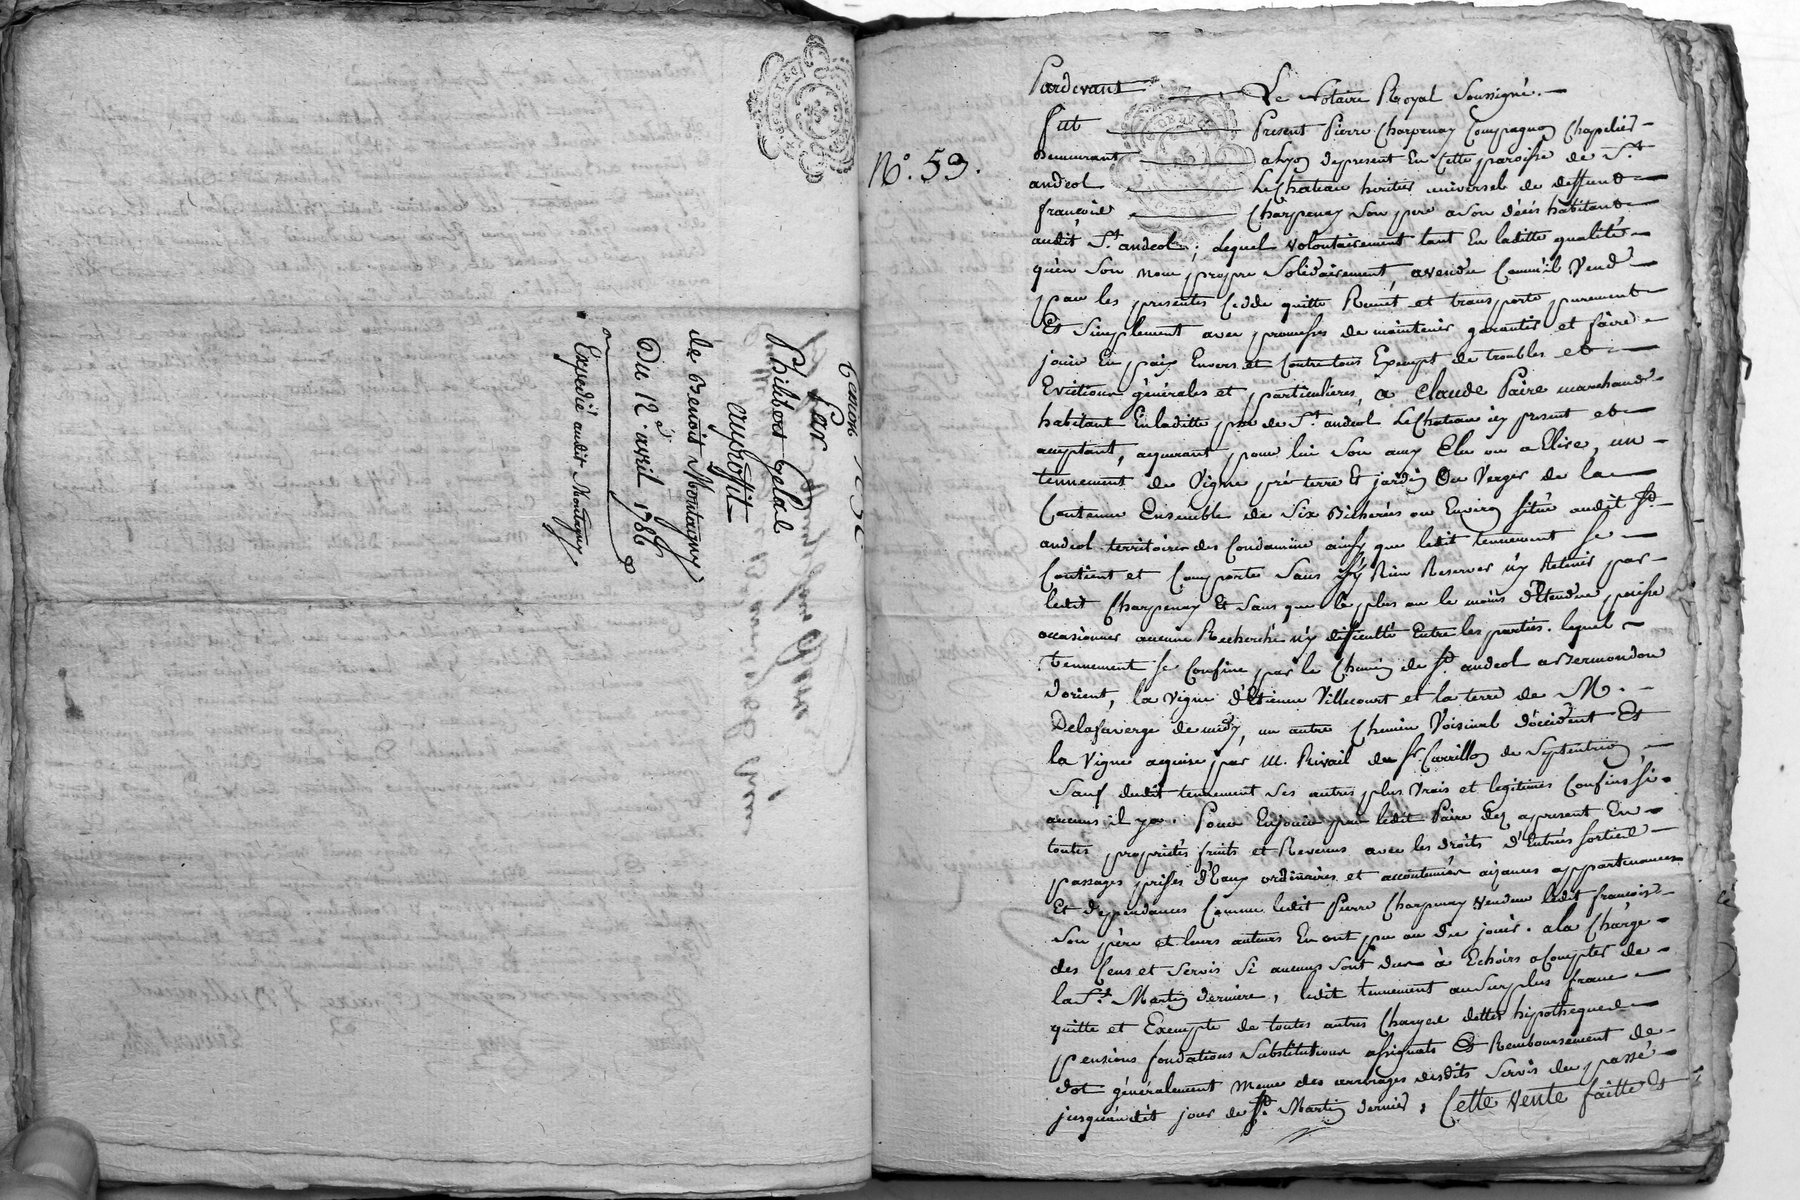 Par
Philibert Gelas
au proffit
de Benoit Montagny
Du 12.e avril 1786
Expedié audit Montagny
N.o 59.
Pardevant Le Notaire Royal Soussigné.
fut Present Pierre Charpenay Compagnon Chapelier
demeurant a Lyon depresent En Cette paroisse de S.t
andeol Le Chateau heritier universel de deffunt
francois Charpenay Son pere a Son décès habitant
audit S.t andeol; Lequel volontairement tant En laditte qualité
qu'en Son nom propre Solidairement a vendu Comm'il Vend
par les presentes Cedde quitte Remet et transporte purement
Et Simplement avec promesses de maintenir garantir et faire
jouir En paix Envers et Contre tous Exempt de troubles et
Evictions générales et particulieres, a Claude Paire marchand
habitant En laditte p.sse de S.t andeol Le Chateau icy present et
acceptant, acquerant pour lui Son amy Elu ou a Elire, un
tennement de Vigne pré terre Et jardin ou Verger de la
Contenue Ensemble de Six Bicherées ou Environ Situé audit S.t
andeol territoire des Condamine ainsy que ledit tennement Se
Contient et Comporte Sans y Rien Reserver n'y Retenir par
ledit Charpenay Et Sans que le plus ou le moins d'Etendue puisse
occasionner aucune Recherche n'y difficulté Entre les parties. lequel
tennement Se Confine par le Chemin de S.t andeol a Bermondon
d'orient, la vigne d'Etienne Villecourt et la terre de M.
Delafaverge de midy, un autre Chemin Voisinal d'occident Et
la Vigne acquise par M. Rivail du S.r Carrillon de Septentrion
Sauf dudit tennement Ses autres plus Vrais et legitimes Confins Si
aucuns il y a. Pour En jouir par ledit Paire dez apresent En
toutes proprietés fruits et Revenus avec les droits d'Entrées Sorties
passages prises d'Eaux ordinaires et accoutumées aizances appartenances
Et dependances Comme ledit Pierre Charpenay Vendeur ledit francois
Son père et leurs auteurs En ont pu ou du jouir. a la Charge
des Cens et Servis Si aucuns Sont dus à Echoirs a Compter de
la S.t Martin derniere, ledit tennement au Surplus franc
quitte et Exempte de toutes autres Charges dettes hipotheques
pensions fondations Substitutions assignats Et Remboursement de
dot généralement meme des arrerages desdits Servis du passé
jusqu'audit jour de S.t Martin dernier, Cette Vente faitte Et